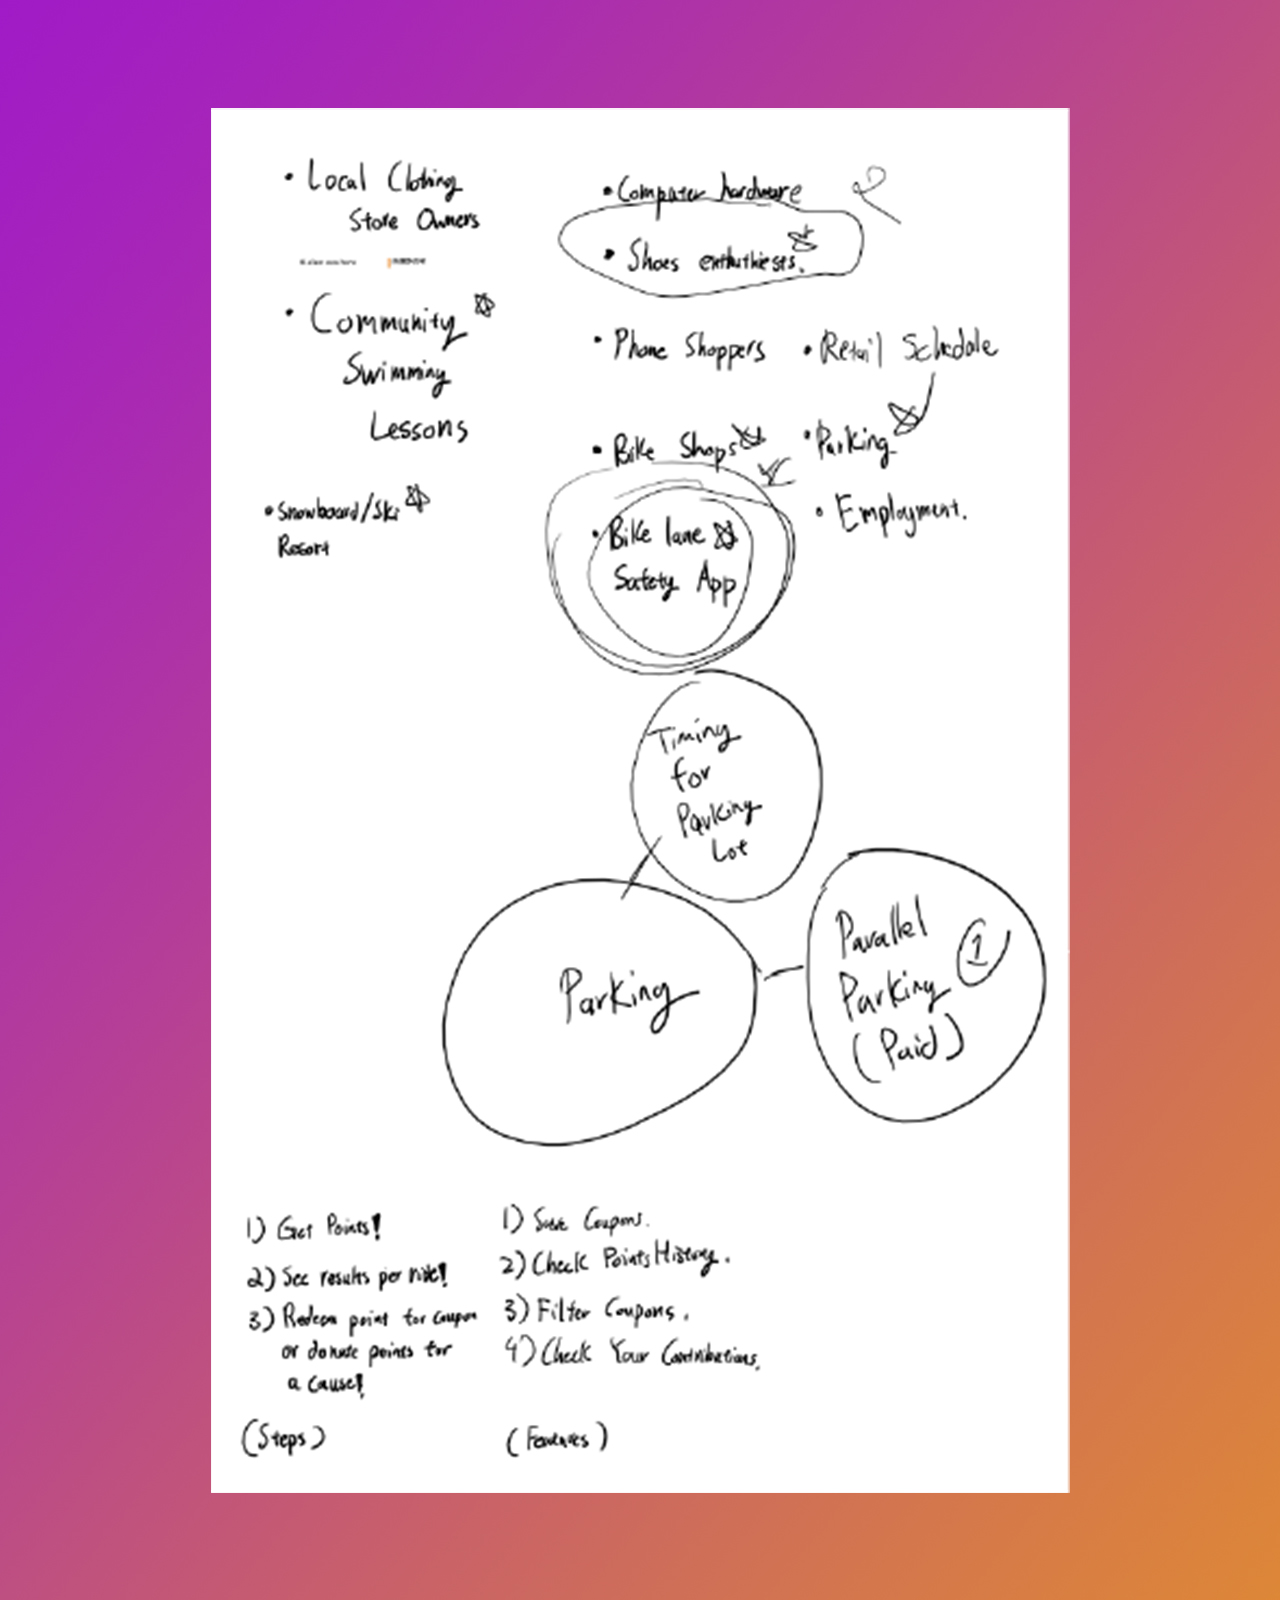 • Local Clothing
Store Owners
• Community
Swimming
Lessons
• Snowboard/Ski
Resort
• Computer hardware
• Shoes enthuthiests.
• Phone Shoppers
• Retail Schedule
• Bike Shops
• Parking
• Employment.
• Bike lane
Safety App
Timing
for
Parking
Lot
Parking
Parallel
Parking
(Paid)
1
1) Get Points!
2) See results per ride!
3) Redeem point for coupon
or donate points for
a cause!
(Steps)
1) Save Coupons.
2) Check Points History.
3) Filter Coupons.
4) Check Your Contributions.
(Features)